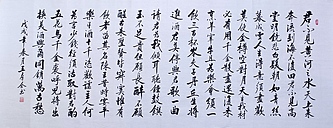 君不見黃河之水天上
來奔流到海不復回君不見高
堂明鏡悲白髮朝如青絲
暮成雪人生得意須盡歡
莫使金樽空對月天生我材
必有用千金散盡還復來
烹羊宰牛且為樂會須一
飲三百杯岑夫子丹丘生將
進酒君莫停與君歌一曲
請君為我傾耳聽鐘鼓饌
玉不足貴但願長醉不願
醒古來聖賢皆寂寞惟有
飲者留其名陳王昔時宴平
樂斗酒十千恣歡謔主人何
為言少錢徑須沽取對君酌
五花馬千金裘呼兒將出
換美酒與爾同銷萬古愁
戊戌年春月書